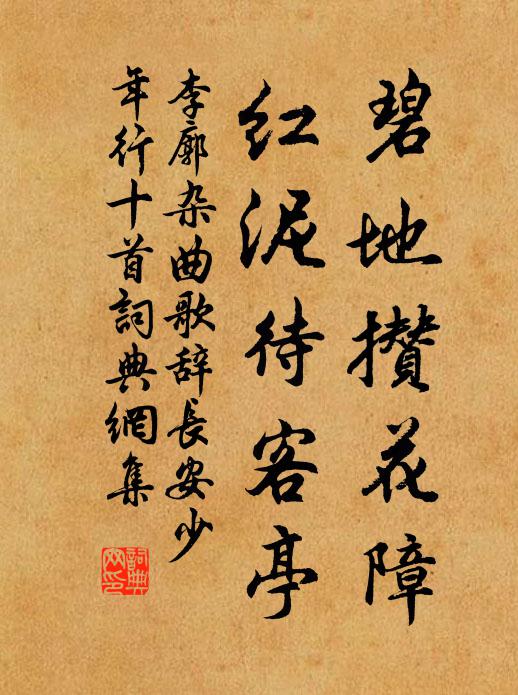 碧地攅花障
红泥待客亭
李廓杂曲歌辞长安少
年行十首詞典網集
詞典
网印